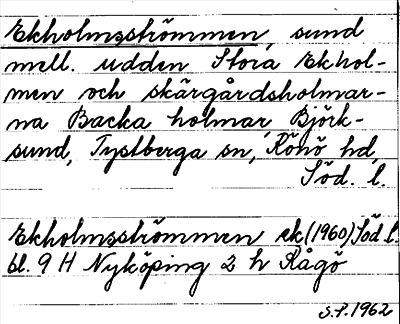 Ekholmsströmmen, sund
mell. udden Stora Ekhol-
men och skärgårdsholmar-
na Backa holmar, Björk-
sund, Tystberga sn, Rönö hd,
Söd. l.
Ekholmsströmmen ek (1960) Söd l.
bl. 9 H Nyköping 2 h Rågö
S.P. 1962